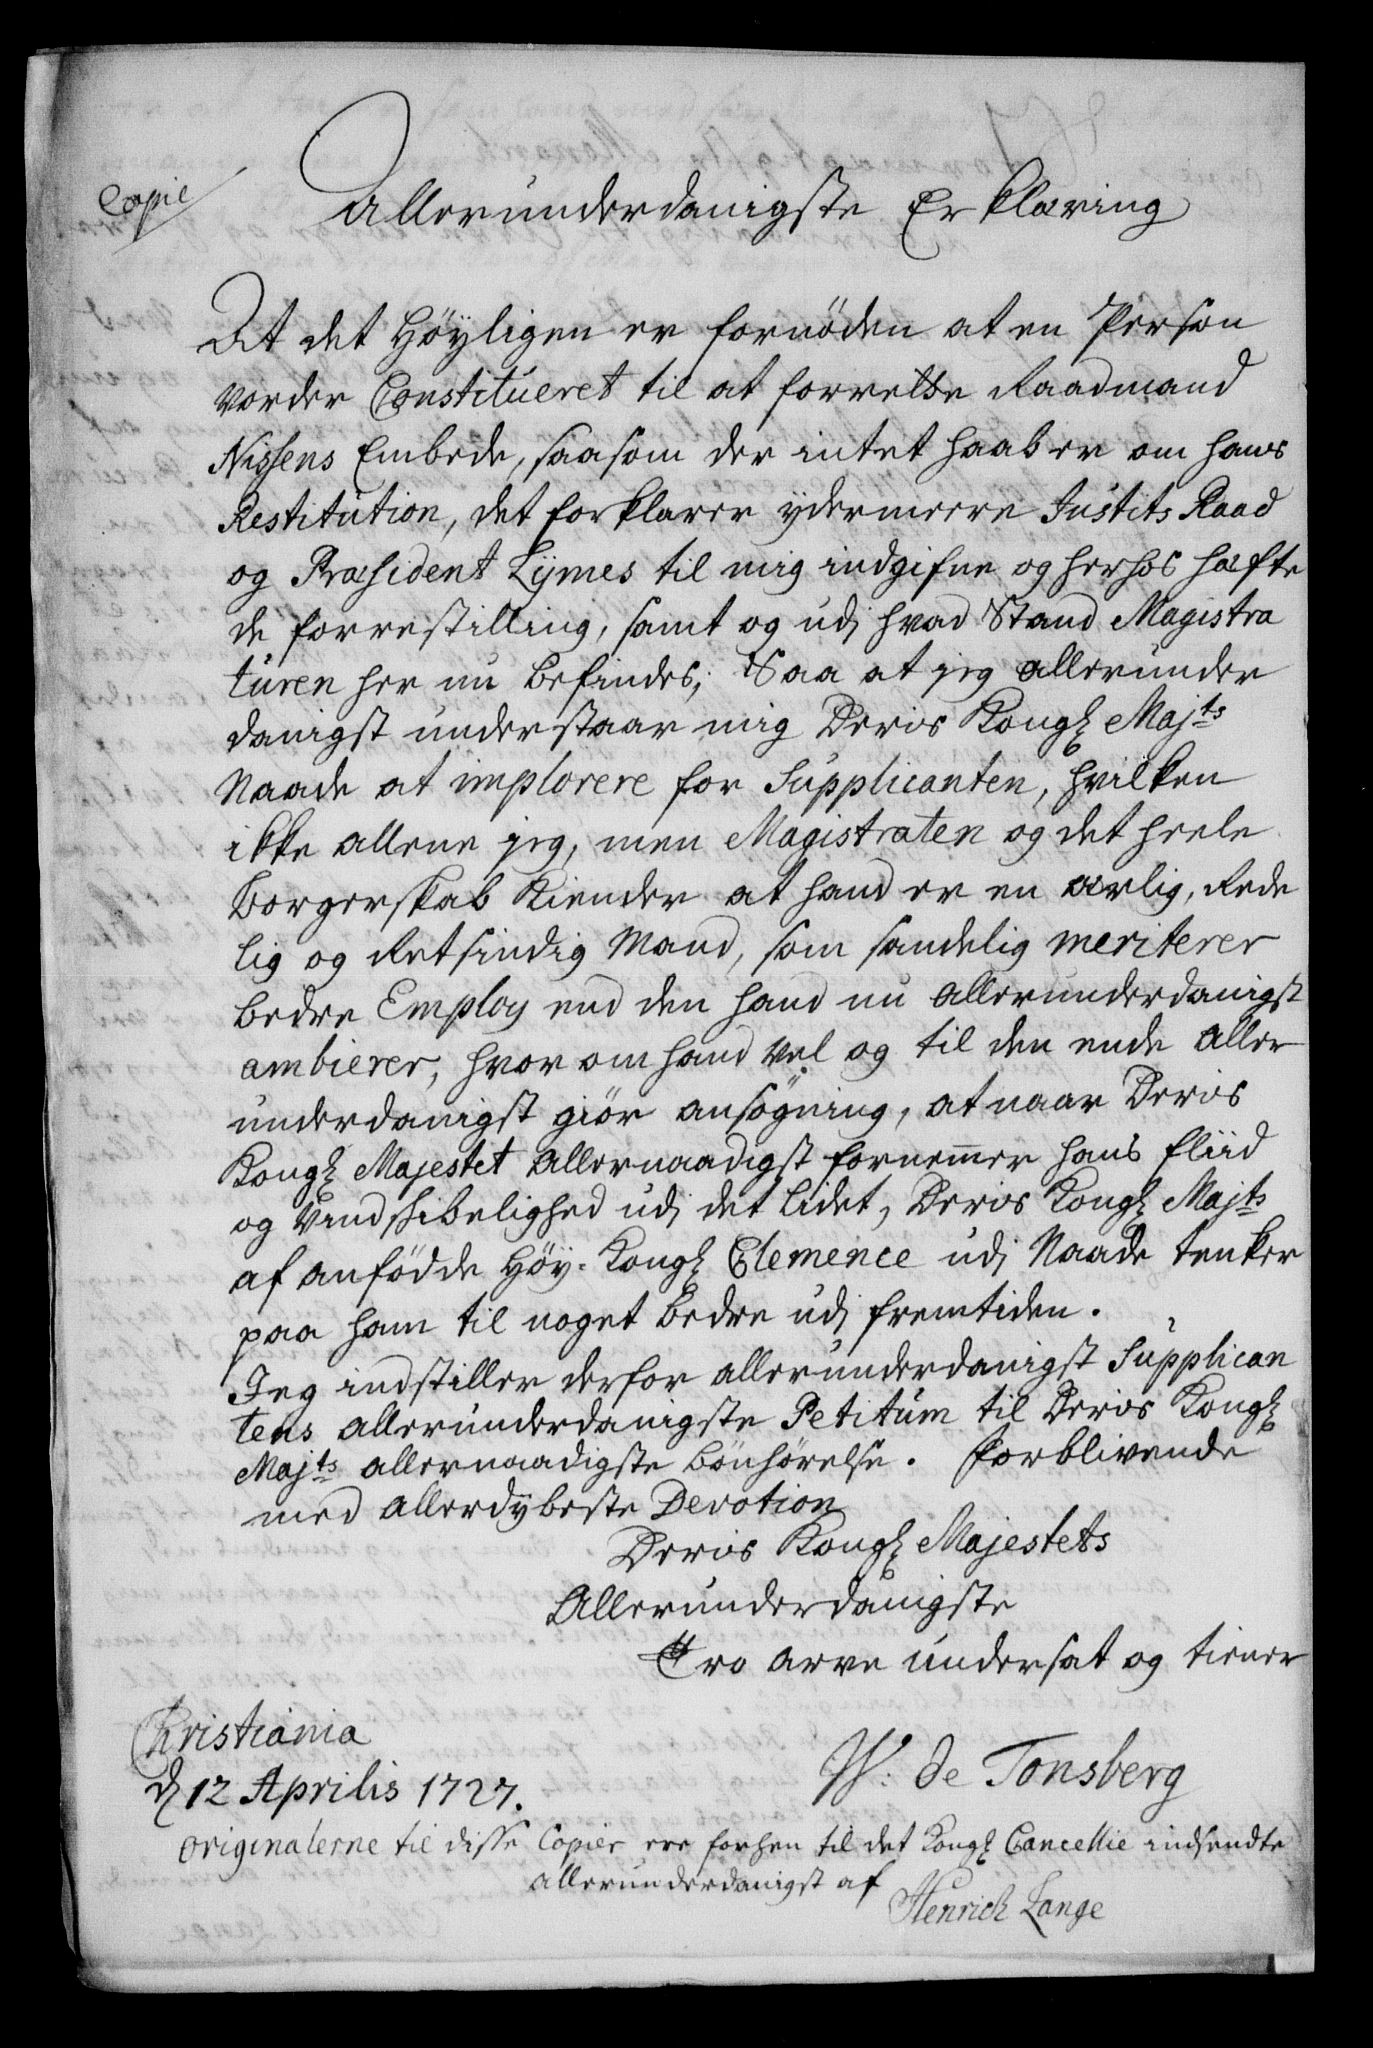 Copie
Allerunderdanigste Erklæring
At det Höyligen er fornöden at en Person
vorder Constitueret til at forrette Raadmand
Nissens Embede, saasom der intet haab er om hans
Restitution, det forklarer ydermeere Justits Raad
og Præsident Lymes til mig indgifne og herhos hæfte
de forrestilling, samt og udj hvad Stand Magistra
turen her nu befindes; Saa at jeg allerunder
danigst understaar mig Deris Kongl Majts
Naade at implorere for Supplicanten, hvilken
ikke allene jeg, men Magistraten og det heele
Borgerskab Kiender at hand er en ærlig, Rede
lig og Retsindig Mand, som sandelig meriterer
bedre Employ end den hand nu allerunderdanigst
ambierer, hvor om hand vel og til den ende aller
underdanigst giör ansögning, at naar Deris
Kongl Majestet allernaadigst fornemer hans fliid
og Vindskibelighed udj det lidet, Deris Kongl Majts
af anfödde Höy-Kongl Clemence udj Naade tenker
paa ham til noget bedre udj fremtiden.
Jeg indstiller derfor allerunderdanigst Supplican
tens allerunderdanigste Petitum til Deris Kongl
Majts allernaadigste bönhörelse. Forblivende
med allerdybeste Devotion
Deris Kongl Majestets
Allerunderdanigste
Tro arve undersat og tiener
Christiania
d 12 Aprilis 1727.
W: de Tonsberg
Originalerne til disse Copier ere forhen til det Kongl Cancellie indsendte
allerunderdanigst af
Henrich Lange